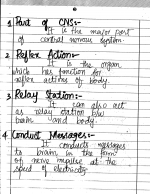 1 Part of CNS:-
It is the major part
of central nervous system.
2. Reflex Action:-
It is the organ
which has function for
reflex actions of body
3. Relay Station:-
It can also act
as relay station b/w
brain and body.
4. Conduct Messages:-
It conducts messages
to brain in the form
of nerve impulse at the
speed of electricity.